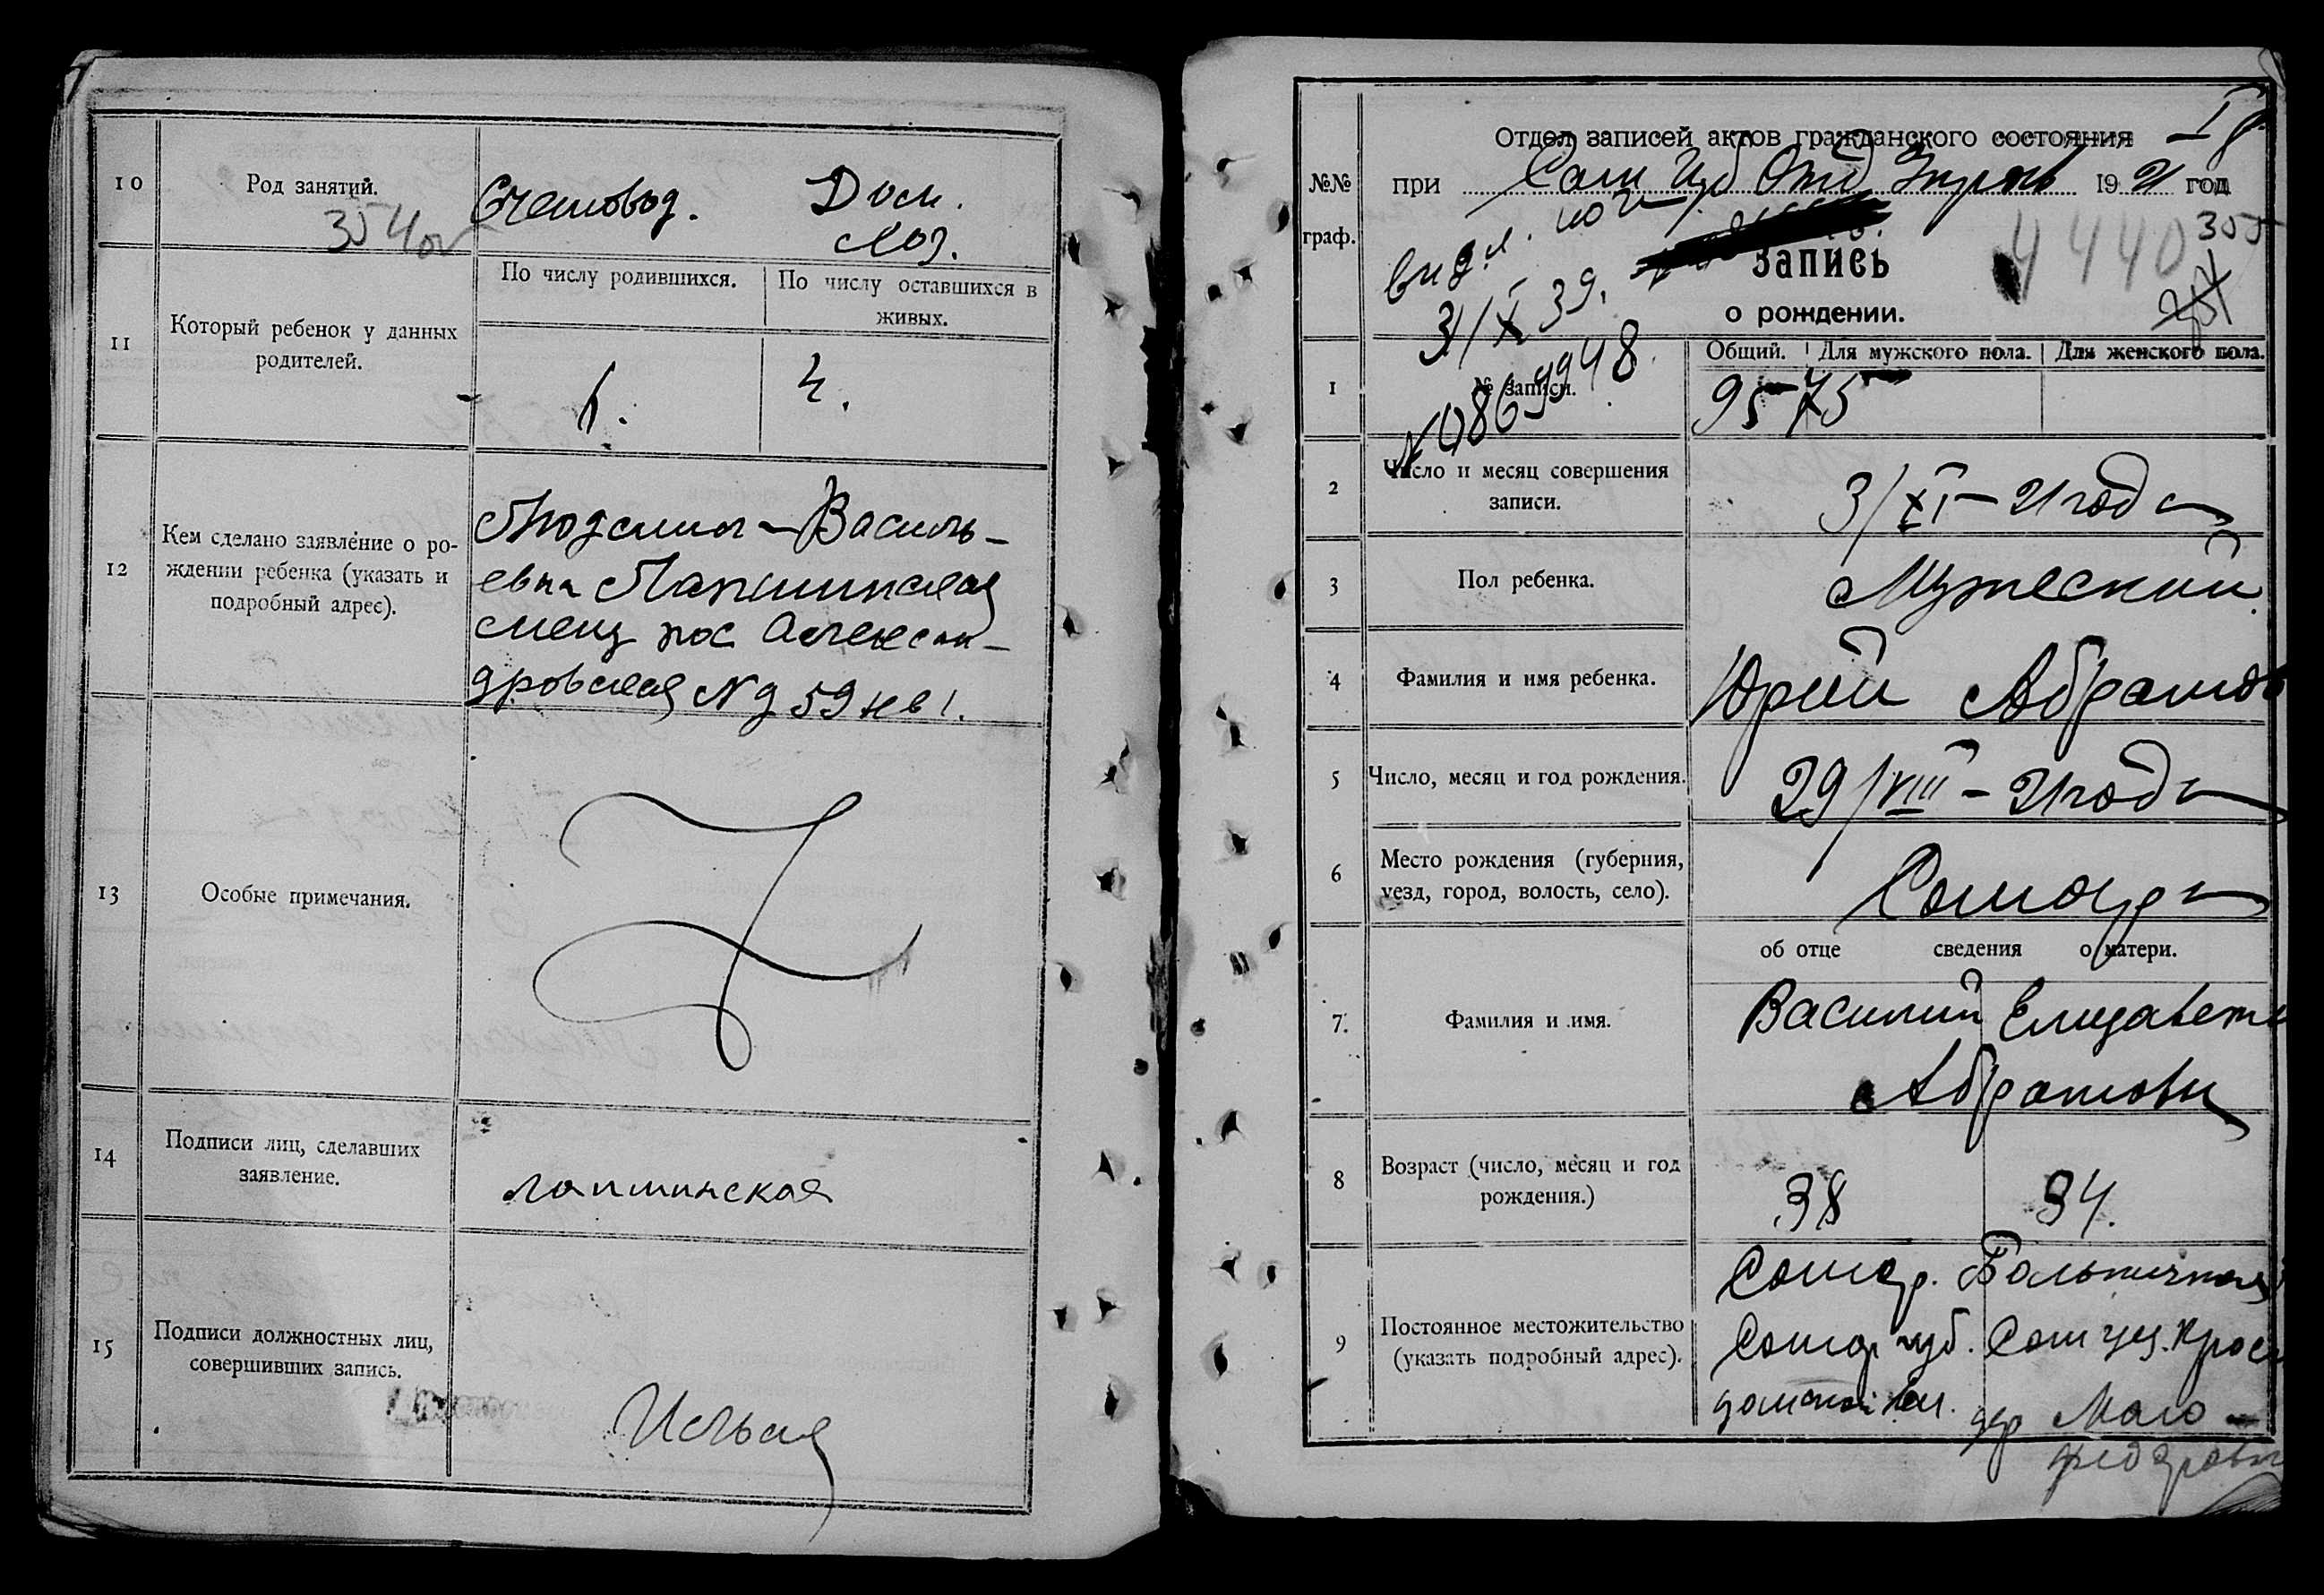 10
Род занятий.
354об
Счетовод.
Дом.
хоз.
11
Который ребенок у данных
родителей.
По числу родившихся.
По числу оставшихся в
живых.
12
Кем сделано заявление о ро-
ждении ребенка (указать и
подробный адрес).
Людмила Василь-
евна Лапшинская
смещ пос Алексан-
дровская N д 59 кв 1.
13
Особые примечания.
14
Подписи лиц, сделавших
заявление.
Лапшинская
15
Подписи должностных лиц,
совершивших запись.
Отдел записей актов гражданского состояния
№№
граф.
при Сам Губ Отд 1921 год
355
4440
запись
о рождении.
31/X 39.
1
№ записи.
Общий.
Для мужского пола.
Для женского пола.
95
75
2
Число и месяц совершения
записи.
3/XI-21 года
3
Пол ребенка.
Мужеский.
4
Фамилия и имя ребенка.
Юрий Абрамов
5
Число, месяц и год рождения.
29/VIII-21 года
6
Место рождения (губерния,
уезд, город, волость, село).
Самара
об отце сведения о матери.
7.
Фамилия и имя.
Василий Елизавета
Абрамовы
8
Возраст (число, месяц и год
рождения.)
38
34.
9
Постоянное местожительство
(указать подробный адрес).
Самар. Больничная
Самар губ. Сам уез.
дер Мало-